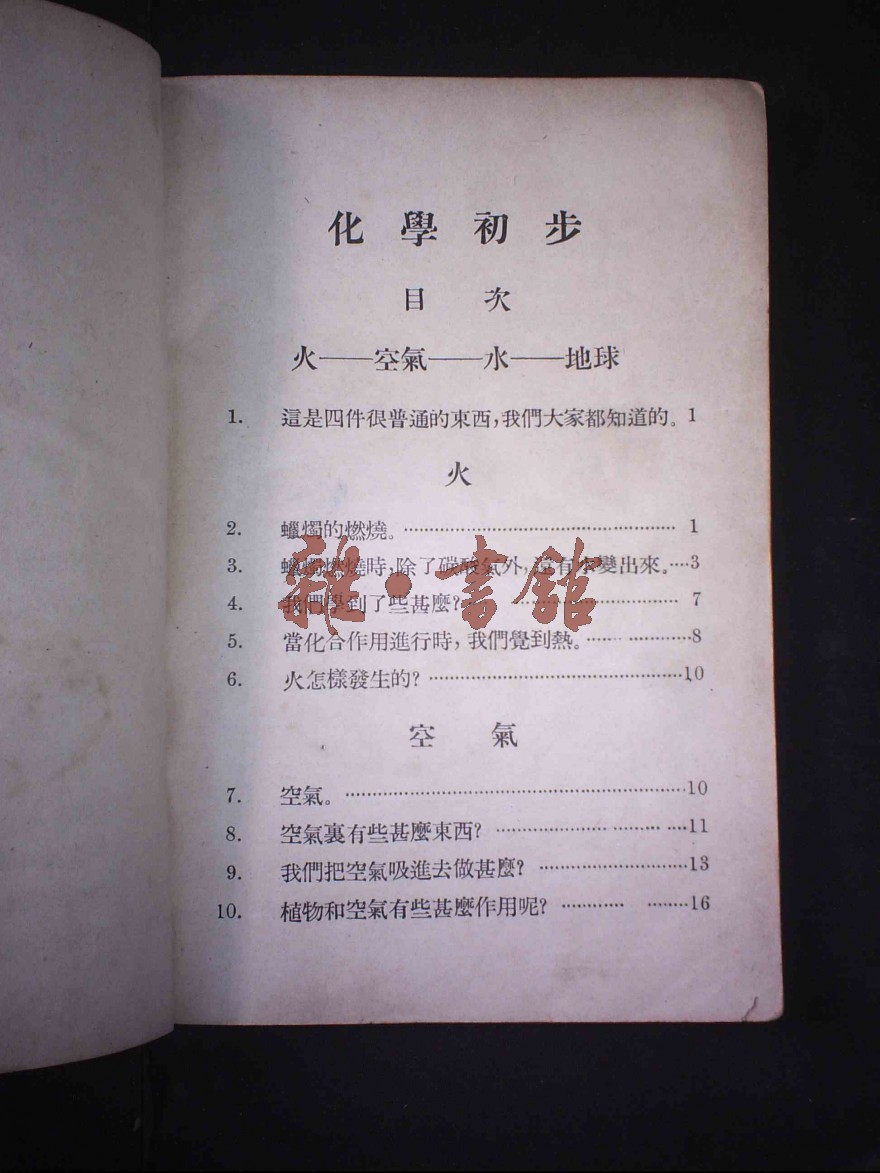 化學初步
目次
火——空氣——水——地球
1. 這是四件很普通的東西,我們大家都知道的。1
火
2. 蠟燭的燃燒。 1
3. 蠟燭燃燒時,除了碳酸氣外,還有水變出來。 3
4. 我們學到了些甚麼? 7
5. 當化合作用進行時,我們覺到熱。 8
6. 火怎樣發生的? 10
空氣
7. 空氣。 10
8. 空氣裏有些甚麼東西? 11
9. 我們把空氣吸進去做甚麼? 13
10. 植物和空氣有些甚麼作用呢? 16
雜·書館